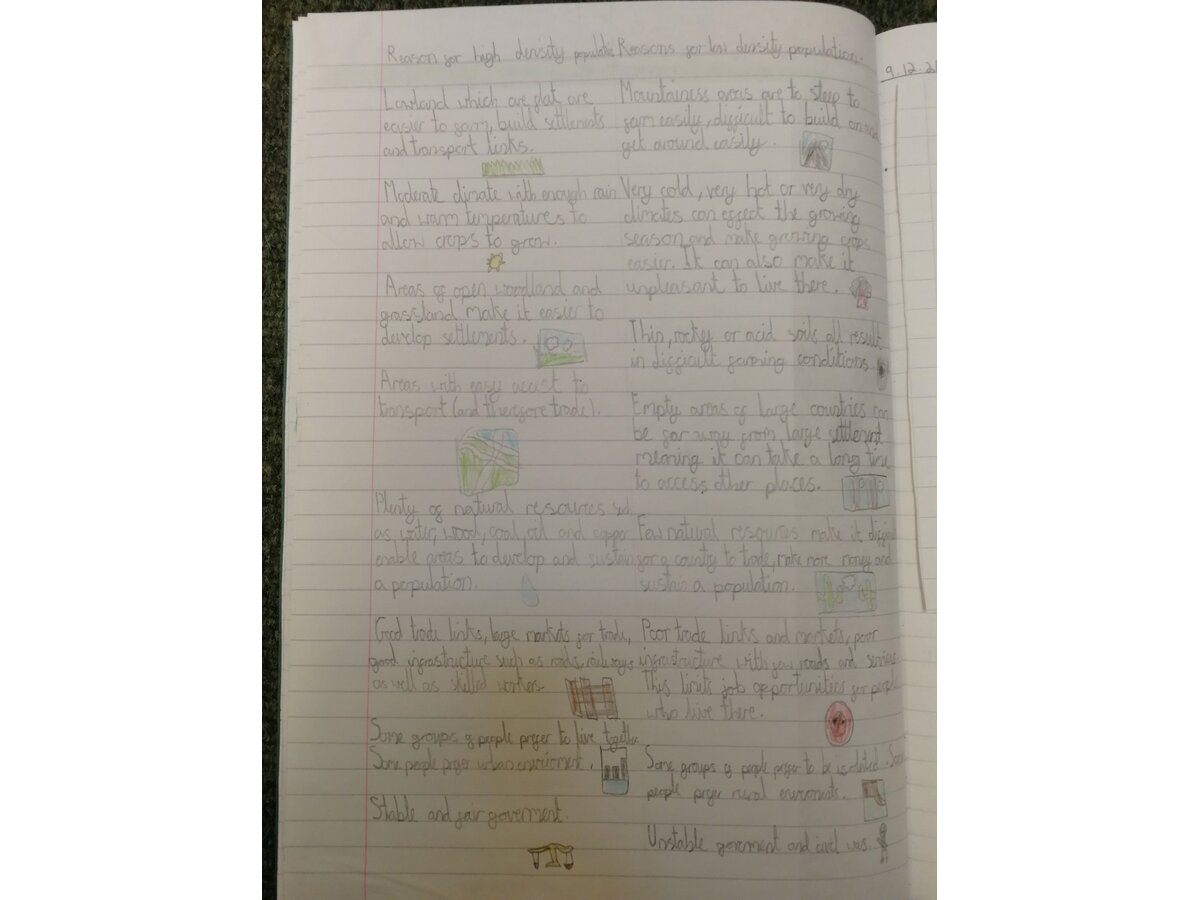 Reason for high density populatio
Lowland which are flat are
easier to farm, build settlements
and transport links.
Moderate climate with enough rain
and warm temperatures to
allow crops to grow.
Areas of open woodland and
grassland make it easier to
develop settlements.
Areas with easy acust to
transport (and therefore trade).
Plenty of natural resources such
as water, wood, coal, oil and copper
enable areas to develop and sustain
a population.
Good trade links, large markets for trade,
good infrastructure such as roads, railways
as well as skilled workers.
Some groups of people prefer to live together.
Some people prefer urban enviroment.
Stable and fair goverment.
Reasons for low density population.
Mountainess areas are to steep to
farm easily, difficult to build on and
get around easily.
Very cold, very hot or very dry
climates can effect the growing
season and make growing crops
easier. It can also make it
unpleasant to live there.
Thin, rocky or acid soils all result
in difficult farming conditions.
Empty areas of large countries can
be far way from large settlement
meaning it can take a long time
to access other places.
Few natural resources make it
for a country to trade, make more money and
sustain a population.
Poor trade links and markets, poor
infrastructure with few roads and services.
This limits job opportunities for people
who live there.
Some groups of people prefer to be isolated. Some
people prefer rural enviroments.
Unstable goverment and civil was.
9.12.21